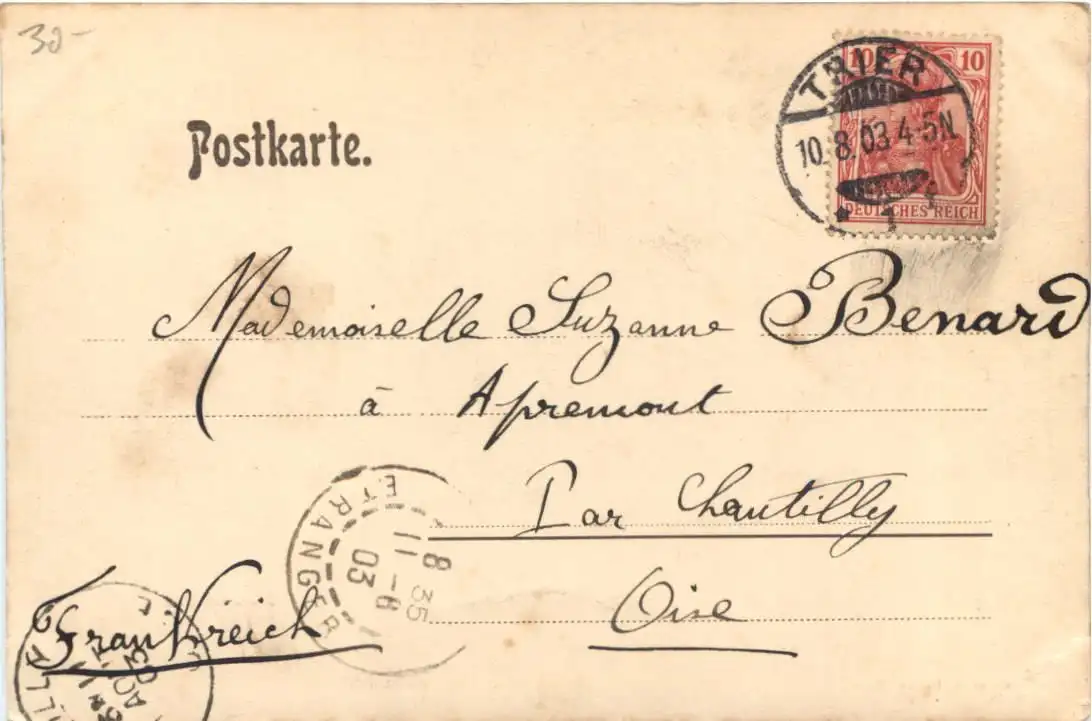 30-
TRIER
10.8.03 4-5N
10 10
DEUTSCHES REICH
Postkarte.
Mademoiselle Suzanne Benard
à Apremont
Par Chantilly
Oise
Frankreich
ETRANGER
8 35
11-8
03